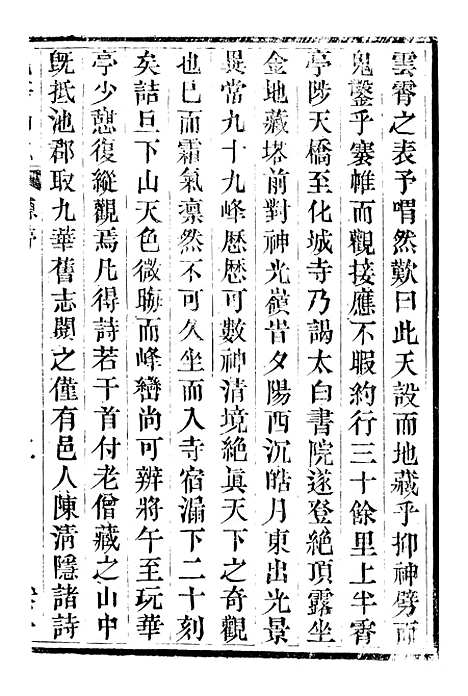 雲霄之表予喟然歎曰此天設而地藏乎抑神劈而
鬼鑿乎褰帷而觀接應不暇約行三十餘里上半霄
亭陟天橋至化城寺乃謁太白書院遂登絶頂露坐
金地藏塔前對神光嶺皆夕陽西沉皓月東出光景
異常九十九峰歷歷可數神清境絶眞天下之奇觀
也已而霜氣凛然不可久坐而入寺宿漏下二十刻
矣詰旦下山天色微聯而峰巒尚可辨將午至玩華
亭少憩復縱觀焉凡得詩若干首付老僧藏之山中
旣抵池郡取九華舊志閱之僅有邑人陳淸隱諸詩